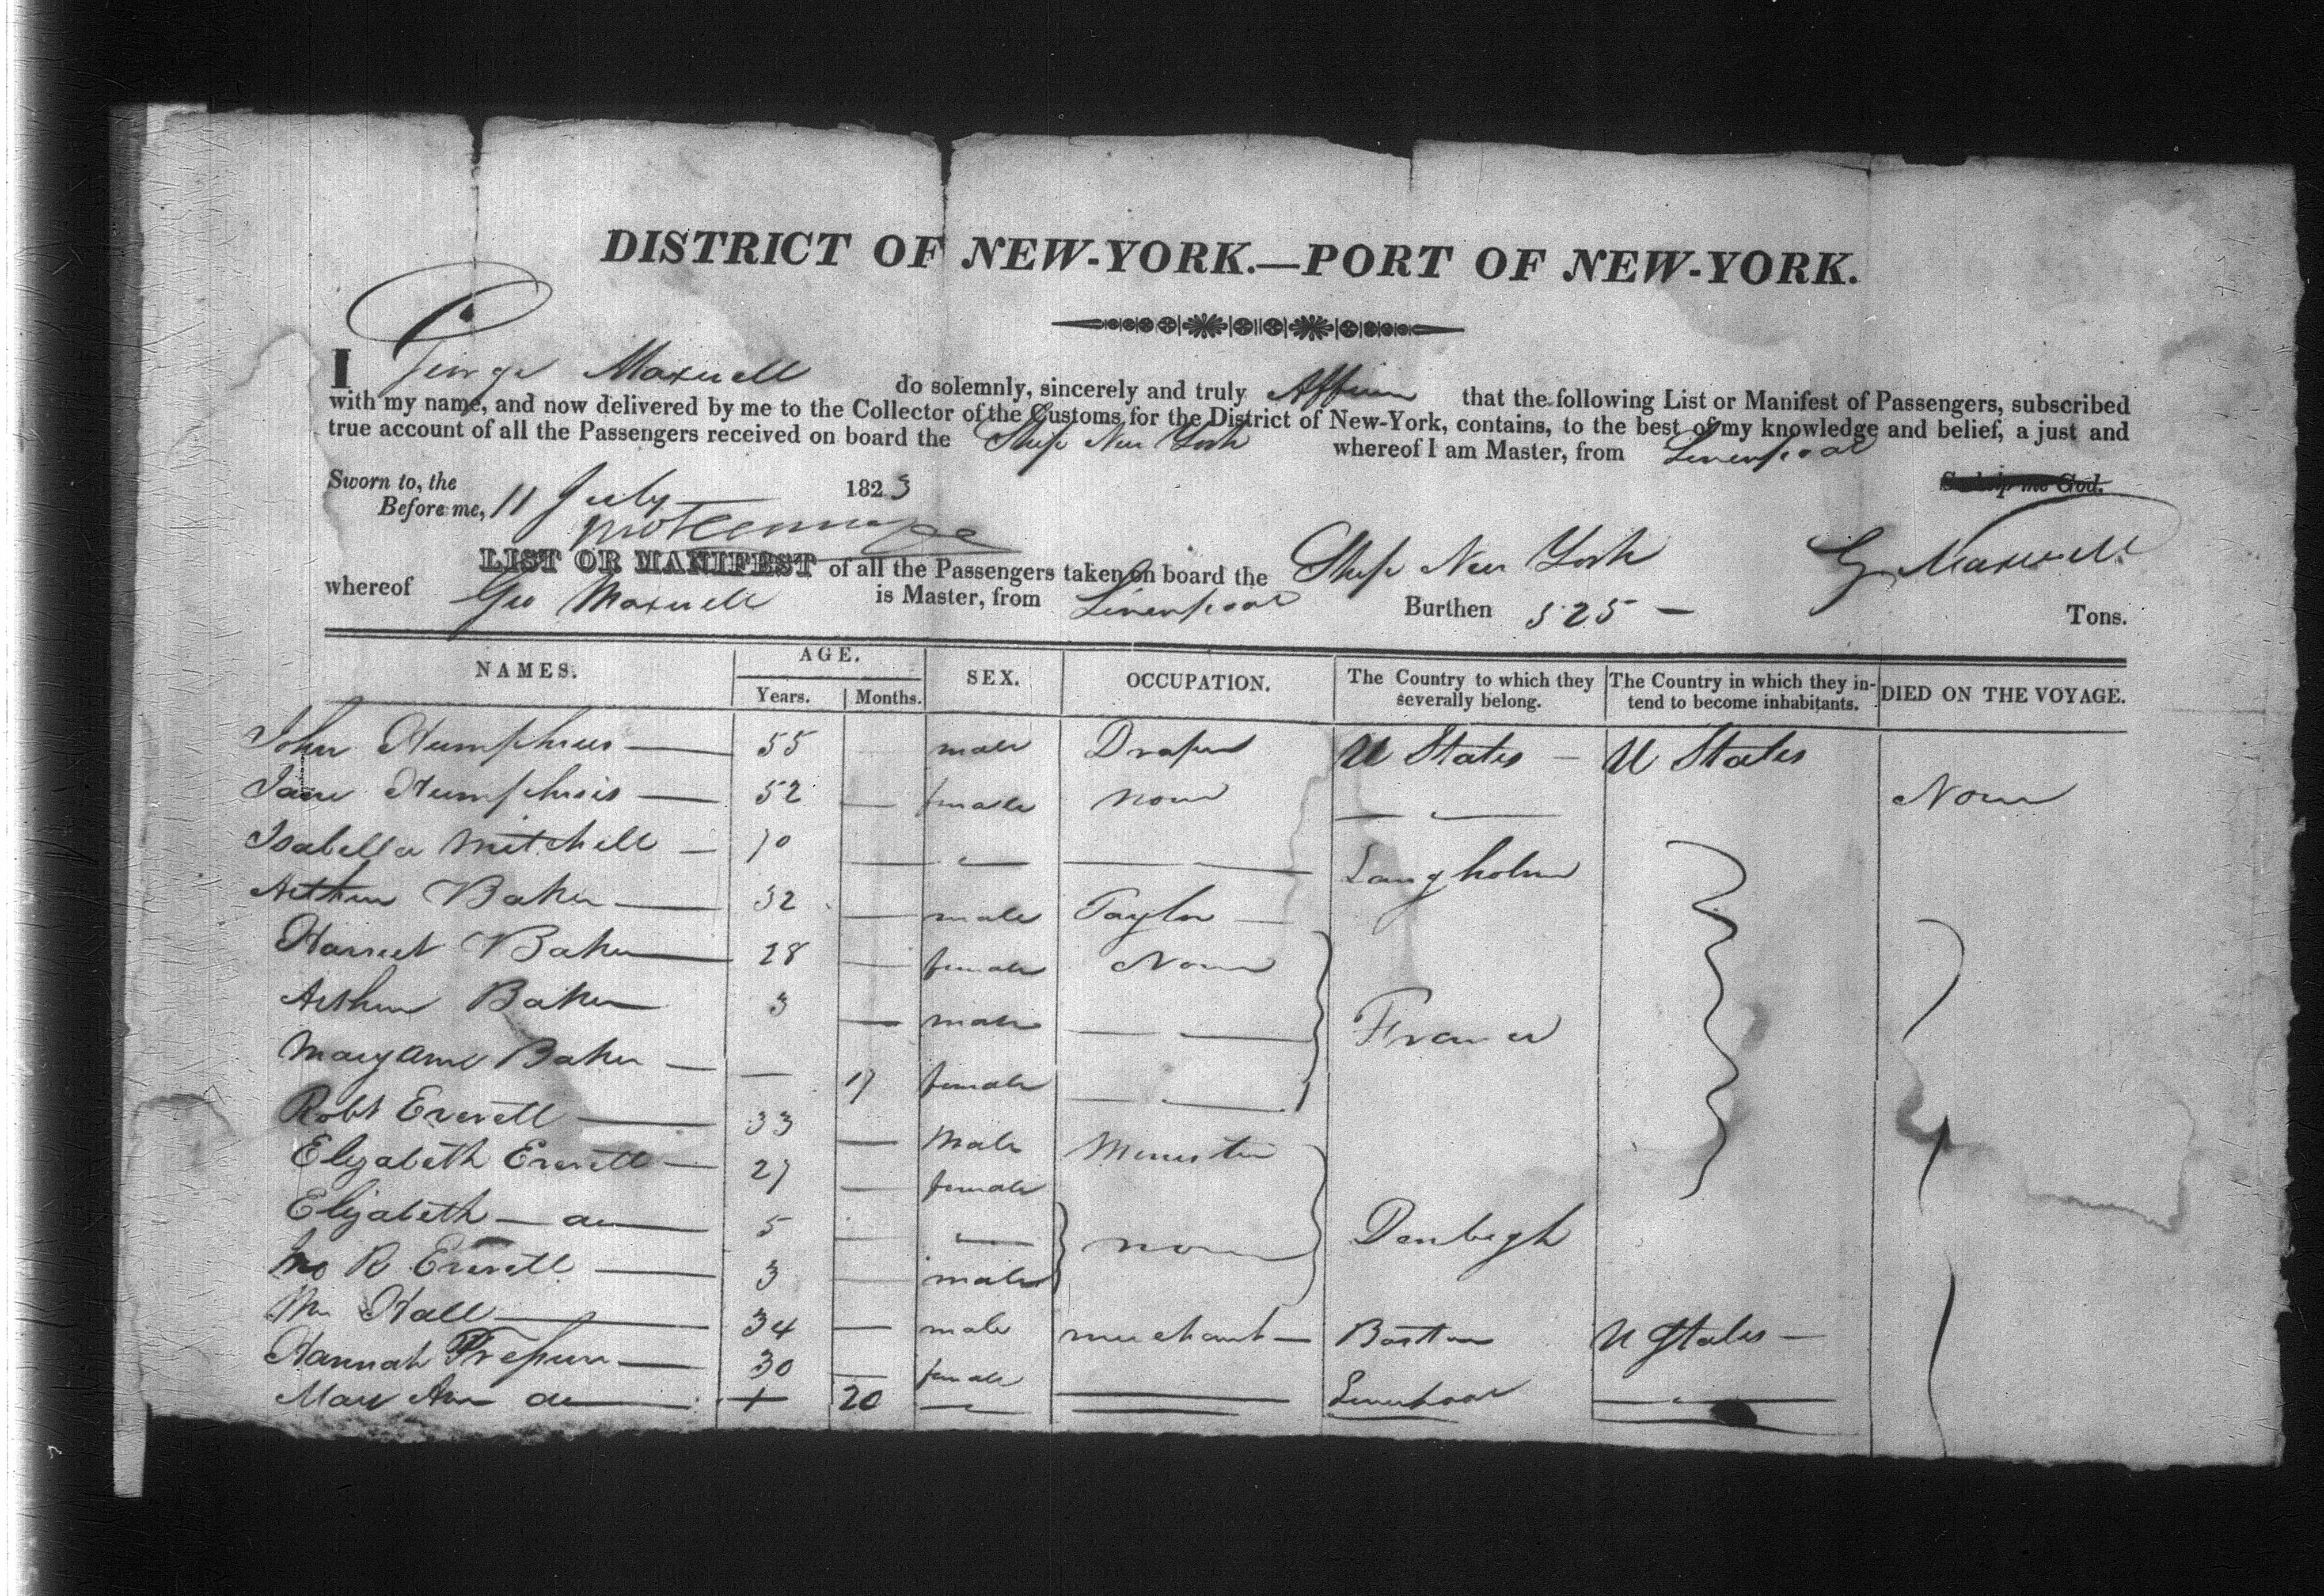 DISTRICT OF NEW-YORK.—PORT OF NEW-YORK.
I George Maxwell do solemnly, sincerely and truly Affirm that the following List or Manifest of Passengers, subscribed
with my name, and now delivered by me to the Collector of the Customs for the District of New-York, contains, to the best of my knowledge and belief, a just and
true account of all the Passengers received on board the Ship New York whereof I am Master, from Liverpool
Sworn to, the 11 July 1823 So help me God.
Before me,
G Maxwell
LIST OR MANIFEST of all the Passengers taken on board the Ship New York
whereof Geo Maxwell is Master, from Liverpool Burthen 525 — Tons.
NAMES. AGE. Years. Months. SEX. OCCUPATION. The Country to which they severally belong. The Country in which they intend to become inhabitants. DIED ON THE VOYAGE.
John Humphries 55 male Draper U States — U States
Jane Humphries 52 — female none — — None
Isabella Mitchell — 70 — — — Langholm
Arthur Baker 32 — male Taylor —
Harriet Baker 28 — female None
Arthur Baker 3 — male — — France
Mary Ann Baker — — 17 female — —
Robt Everett 33 — Male Minister
Elizabeth Everett — 27 — female
Elizabeth — do 5 — — none Denbigh
Jno R Everett — 3 — male
Wm Hall 34 — male merchant — Boston U States —
Hannah 30 — female Liverpool
Mary Ann do + 20 —